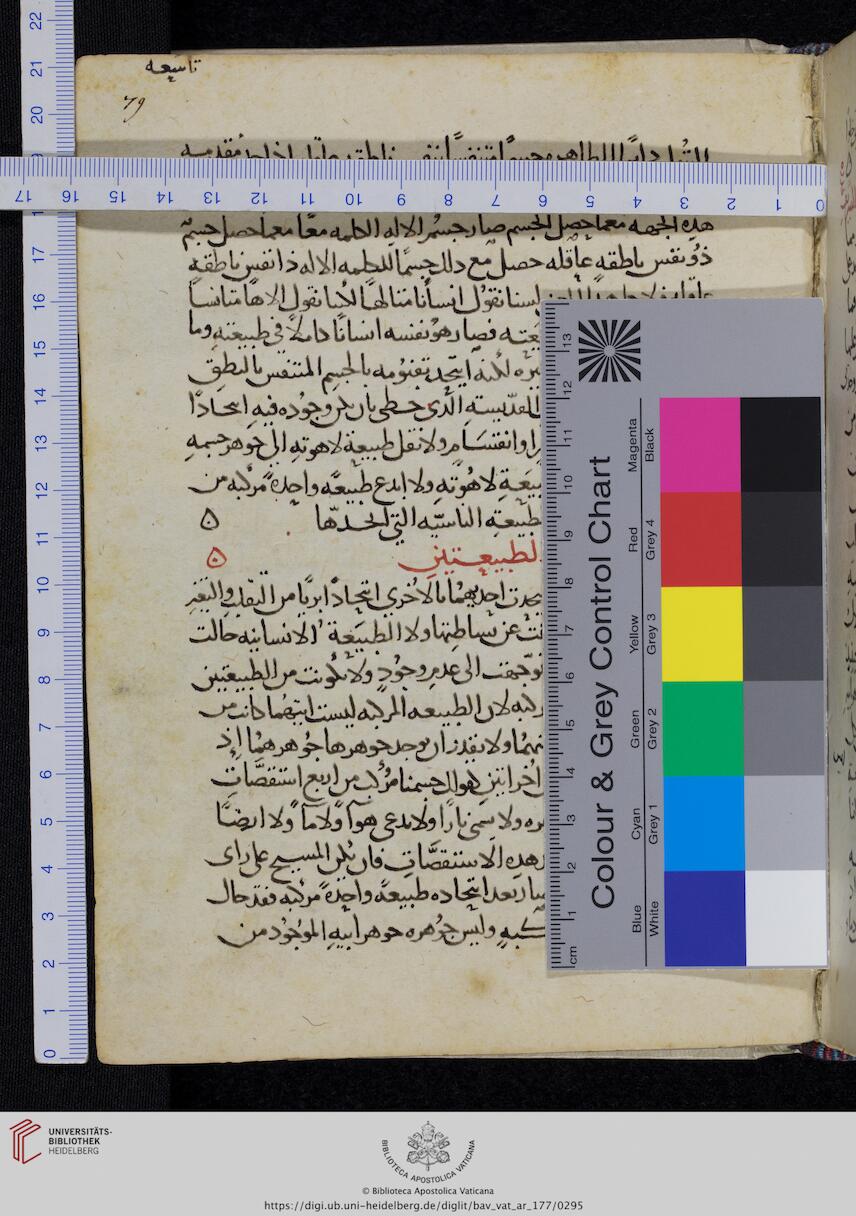 تاسعه
79
هذه الجهه معما حصل الجسم صار جسم الاله الكلمه معًا معما حصل جسم
ذو نفس ناطقه عاقله حصل مع ذلك جسمًا للكلمه الاله ذا نفس ناطقه
لسنا نقول انسانًا متالهًا لكنا نقول الاهًا متانسًا
فصار هو نفسه انسانًا كاملاً في طبيعته وما
لكنه اتحد بقنومه بالجسم المتنفس بالنطق
الذي حظى بان يكن وجوده فيه اتحادًا
وانقسام ولا نقل طبيعة لاهوته الى جوهر جسمه
لاهوته ولا ابدع طبيعًه واحدهً مركبه من
طبيعته الناسيّه التي اتخدها ه
الطبيعتين ه
احديهما بالاخرى اتحادًا بريًا من التقلب والتغير
عن بساطتها ولا الطبيعة الانسانيه حالت
توجّهت الى عدم وجودٍ ولا تكونت من الطبيعتين
لان الطبيعه المركبه ليست ايتهما كانت من
ولا يقدر ان يوجد جوهرها جوهرهما اذ
جسمنا مركب من اربع استقصّاتٍ
ولا سمي نارًا ولا يدعى هوآ ولا مآ ولا ارضًا
هذه الاستقصّات فان يكن المسيح على راى
صار بعد اتحاده طبيعهً واحدهً مركبه فقد حال
وليس جوهره جوهر ابيه الموجود من
0 1 2 3 4 5 6 7 8 9 10 11 12 13 14 15 16 17
0 1 2 3 4 5 6 7 8 9 10 11 12 13 14 15 16 17 20 21 22
Colour & Grey Control Chart
cm 1 2 3 4 5 6 7 8 9 10 11 12 13
Blue Cyan Green Yellow Red Magenta
White Grey 1 Grey 2 Grey 3 Grey 4 Black
UNIVERSITÄTS-
BIBLIOTHEK
HEIDELBERG
BIBLIOTECA APOSTOLICA VATICANA
© Biblioteca Apostolica Vaticana
https://digi.ub.uni-heidelberg.de/diglit/bav_vat_ar_177/0295